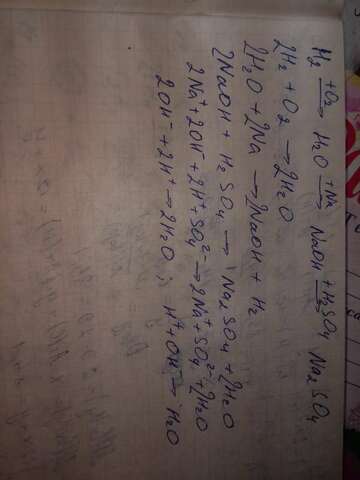 H2 +O2→ H2O +Na→ NaOH +H2SO4→ Na2SO4
2H2 + O2 → 2H2O
2H2O + 2Na → 2NaOH + H2
2NaOH + H2SO4 → Na2SO4 + 2H2O
2Na⁺ + 2OH⁻ + 2H⁺ + SO4²⁻ → 2Na⁺ + SO4²⁻ + 2H2O
2OH⁻ + 2H⁺ → 2H2O ; H⁺ + OH⁻ → H2O